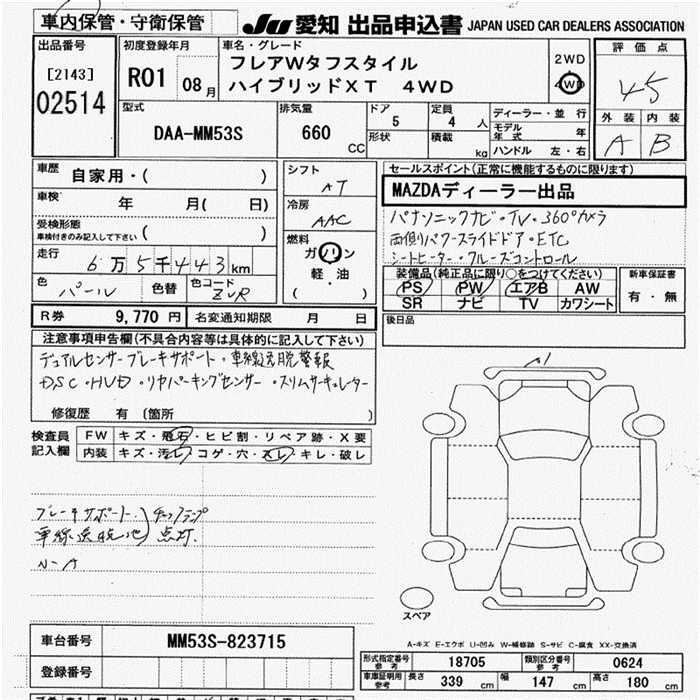 車内保管・守衛保管
JU 愛知 出品申込書 JAPAN USED CAR DEALERS ASSOCIATION
出品番号
[2143]
02514
初度登録年月
R01 08月
車名・グレード
フレアWタフスタイル
ハイブリッドXT 4WD
2WD
4WD
評価点
4.5
外装 内装
A B
型式
DAA-MM53S
排気量
660 CC
ドア 5
形状
定員 4 人
積載 kg
ディーラー・並行
モデル年式 年
ハンドル 左・右
車歴
自家用・( )
車検 年 月( 日)
受検形態
車検付きのみ記入して下さい ( )
走行
6万5千443km
色 パール 色替 色コード ZVR
シフト
AT
冷房
AAC
燃料
ガソリン
軽・油
( )
セールスポイント(正常に機能するものに限ります)
MAZDAディーラー出品
パナソニックナビ・TV・360°カメラ
両側パワースライドドア・ETC
シートヒーター・クルーズコントロール
装備品(純正品に限り○をつけてください)
PS PW エアB AW
SR ナビ TV カワシート
新車保証書
有・無
R券 9,770 円 名変通知期限 月 日
後日品
注意事項申告欄(不具合内容等は具体的に記入して下さい)
デュアルセンサーブレーキサポート・車線逸脱警報
DSC・HUD・リヤパーキングセンサー・スリムサーキュレーター
修復歴 有(箇所 )
検査員記入欄
FW キズ・飛石・ヒビ割・リペア跡・X要
内装 キズ・汚レ・コゲ・穴・スレ・キレ・破レ
ブレーキサポート
車線逸脱他
チェックランプ点灯
N-A
A1
スペア
A-キズ E-エクボ U-凹み W-補修跡 S-サビ C-腐食 XX-交換済
車台番号 MM53S-823715
登録番号
形式指定番号 参考 18705 類別区分番号 参考 0624
車庫証明用 参考 長さ 339 cm 幅 147 cm 高さ 180 cm